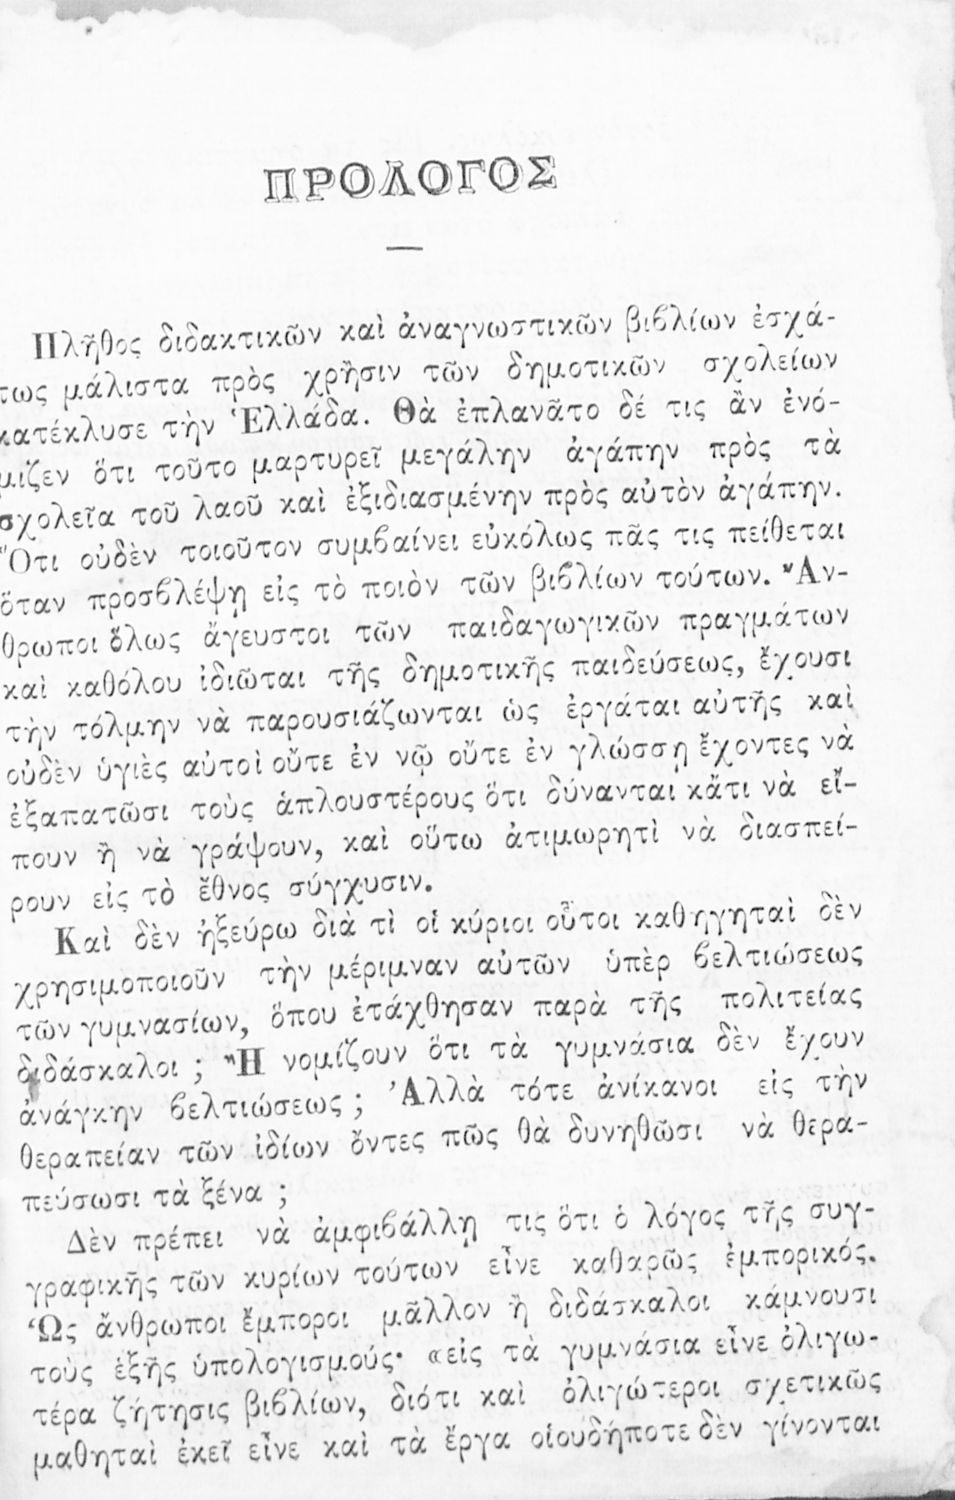 ΠΡΟΛΟΓΟΣ
Πλῆθος διδακτικῶν καὶ ἀναγνωστικῶν βιβλίων ἐσχά-
τως μάλιστα πρὸς χρῆσιν τῶν δημοτικῶν σχολείων
κατέκλυσε τὴν Ἑλλάδα. Θὰ ἐπλανᾶτο δέ τις ἂν ἐνό-
μιζεν ὅτι τοῦτο μαρτυρεῖ μεγάλην ἀγάπην πρὸς τὰ
σχολεῖα τοῦ λαοῦ καὶ ἐξιδιασμένην πρὸς αὐτὸν ἀγάπην.
Ὅτι οὐδὲν τοιοῦτον συμβαίνει εὐκόλως πᾶς τις πείθεται
ὅταν προσβλέψῃ εἰς τὸ ποιὸν τῶν βιβλίων τούτων. Ἄν-
θρωποι ὅλως ἄγευστοι τῶν παιδαγωγικῶν πραγμάτων
καὶ καθόλου ἰδιῶται τῆς δημοτικῆς παιδεύσεως, ἔχουσι
τὴν τόλμην νὰ παρουσιάζωνται ὡς ἐργάται αὐτῆς καὶ
οὐδὲν ὑγιὲς αὐτοὶ οὔτε ἐν νῷ οὔτε ἐν γλώσσῃ ἔχοντες νὰ
ἐξαπατῶσι τοὺς ἁπλουστέρους ὅτι δύνανται κᾄτι νὰ εἴ-
πουν ἢ νὰ γράψουν, καὶ οὕτω ἀτιμωρητὶ νὰ διασπεί-
ρουν εἰς τὸ ἔθνος σύγχυσιν.
Καὶ δὲν ἠξεύρω διὰ τὶ οἱ κύριοι οὗτοι καθηγηταὶ δὲν
χρησιμοποιοῦν τὴν μέριμναν αὐτῶν ὑπὲρ βελτιώσεως
τῶν γυμνασίων, ὅπου ἐτάχθησαν παρὰ τῆς πολιτείας
διδάσκαλοι ; Ἢ νομίζουν ὅτι τὰ γυμνάσια δὲν ἔχουν
ἀνάγκην βελτιώσεως ; Ἀλλὰ τότε ἀνίκανοι εἰς τὴν
θεραπείαν τῶν ἰδίων ὄντες πῶς θὰ δυνηθῶσι νὰ θερα-
πεύσωσι τὰ ξένα ;
Δὲν πρέπει νὰ ἀμφιβάλλῃ τις ὅτι ὁ λόγος τῆς συγ-
γραφικῆς τῶν κυρίων τούτων εἶνε καθαρῶς ἐμπορικός.
Ὡς ἄνθρωποι ἔμποροι μᾶλλον ἢ διδάσκαλοι κάμνουσι
τοὺς ἑξῆς ὑπολογισμούς· «εἰς τὰ γυμνάσια εἶνε ὀλιγω-
τέρα ζήτησις βιβλίων, διότι καὶ ὀλιγώτεροι σχετικῶς
μαθηταὶ ἐκεῖ εἶνε καὶ τὰ ἔργα οἱουδήποτε δὲν γίνονται